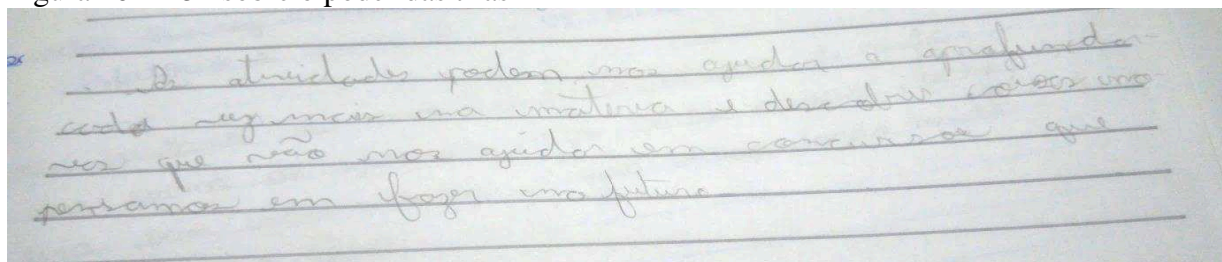 As atividades podem nos ajudar a aprofundar
cada vez mais na materia e descobrir coisas no
vas que vão nos ajudar em concursos que
pensamos em fazer no futuro